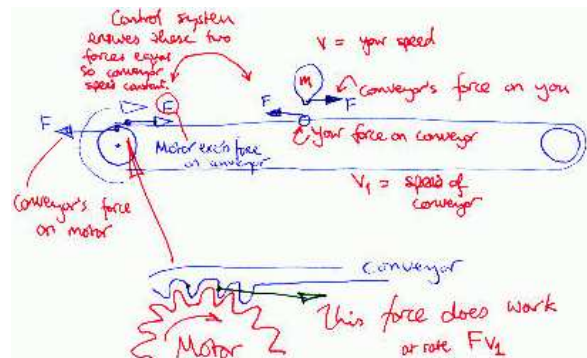 Control system
ensures these two
forces equal
so conveyor
speed constant.
V = your speed
m
Conveyor's force on you
F
F
F
F
Your force on conveyor
Motor exerts force
on conveyor
V₁ = speed of
conveyor
Conveyor's force
on motor
Conveyor
This force does work
at rate FV₁
Motor